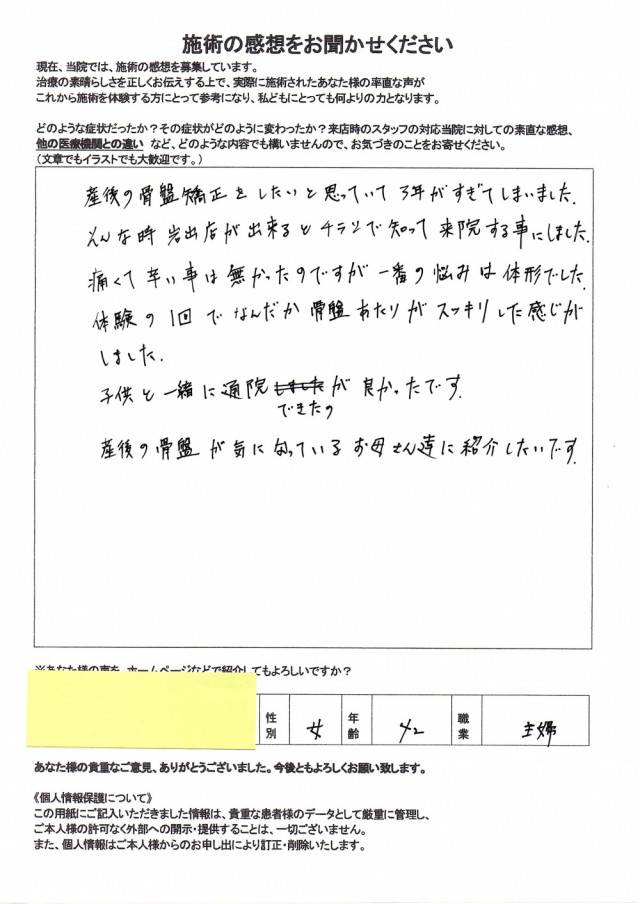 施術の感想をお聞かせください
現在、当院では、施術の感想を募集しています。
治療の素晴らしさを正しくお伝えする上で、実際に施術されたあなた様の率直な声が
これから施術を体験する方にとって参考になり、私どもにとっても何よりの力となります。
どのような症状だったか？その症状がどのように変わったか？来店時のスタッフの対応当院に対しての素直な感想、
他の医療機関との違い など、どのような内容でも構いませんので、お気づきのことをお寄せください。
（文章でもイラストでも大歓迎です。）
産後の骨盤矯正をしたいと思っていて 3年がすぎてしまいました.
そんな時 岩出店が出来るとチラシで知って 来院する事にしました.
痛くて 辛い事は 無かったのですが 一番の悩みは 体形でした.
体験の1回で なんだか 骨盤あたりが スッキリした感じが
しました.
子供と一緒に通院しましたが 良かったです.
できたの
産後の骨盤が気になっている お母さん達に紹介したいです.
※あなた様の声を、ホームページなどで紹介してもよろしいですか？
性別 女 年齢 42 職業 主婦
あなた様の貴重なご意見、ありがとうございました。今後ともよろしくお願い致します。
《個人情報保護について》
この用紙にご記入いただきました情報は、貴重な患者様のデータとして厳重に管理し、
ご本人様の許可なく外部への開示・提供することは、一切ございません。
また、個人情報はご本人様からのお申し出により訂正・削除いたします。